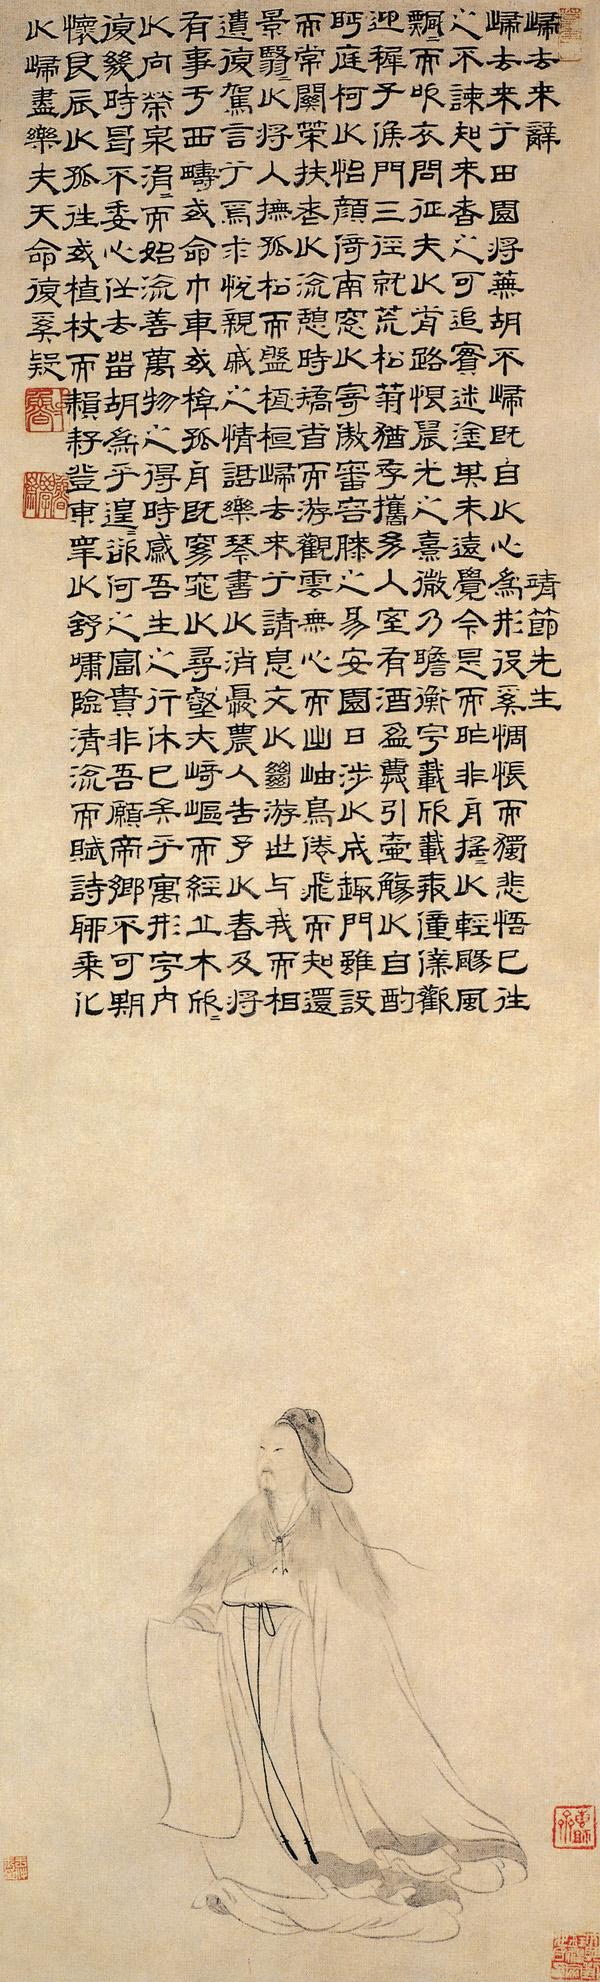 歸去来辭　靖節先生
歸去来兮田園將蕪胡不歸既自以心為形役奚惆悵而獨悲悟已往
之不諫知来者之可追實迷塗其未遠覺今是而昨非舟搖〻以輕颺風
飄〻而吹衣問征夫以前路恨晨光之熹微乃瞻衡宇載欣載奔僮僕歡
迎稚子候門三徑就荒松菊猶存攜幼入室有酒盈樽引壺觴以自酌
眄庭柯以怡顏倚南窓以寄傲審容膝之易安園日涉以成趣門雖設
而常關策扶老以流憩時矯首而游觀雲無心而出岫鳥倦飛而知還
景翳〻以將入撫孤松而盤桓桓歸去来兮請息交以絕游世与我而相
遺復駕言兮焉求悅親戚之情話樂琴書以消憂農人告予以春及將
有事于西疇或命巾車或棹孤舟既窈窕以尋壑亦崎嶇而經丘木欣〻
以向榮泉涓〻而始流善萬物之得時感吾生之行休已矣乎寓形宇內
復幾時曷不委心任去留胡為乎遑〻欲何之富貴非吾願帝鄉不可期
懷良辰以孤往或植杖而耘耔登東皋以舒嘯臨清流而賦詩聊乘化
以歸盡樂夫天命復奚疑